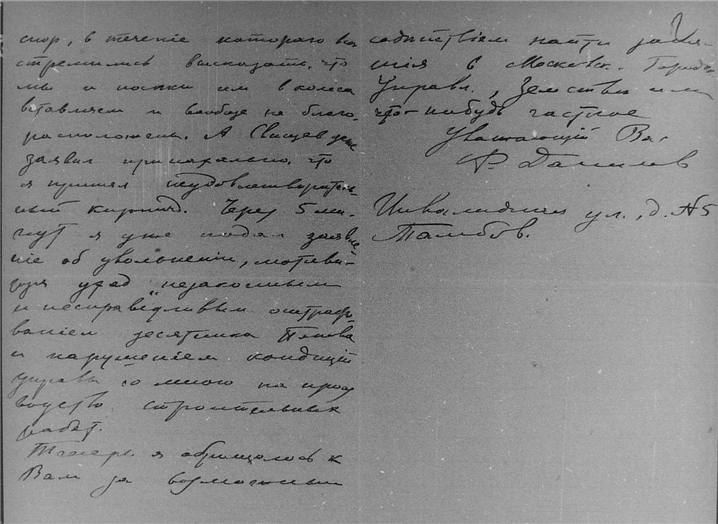 спор, в теченіе котораго вы
стремились высказать, что
мы и палки им в колеса
вставляем и вообще не благо-
расположены. А Свищев даже
заявил принципиально, что
я принял неудовлетворитель-
ный кирпич. Через 5 ми-
нут я уже подал заявле-
ніе об увольнении, мотиви-
руя уход "незаконным
и несправедливым оштрафо-
ваніем десятника Попова
и нарушеніем кондицій
управы со мною на произ-
водство строительных
работ.
Теперь я обращаюсь к
Вам за возможным
содѣйствіем найти заня-
тія в Московск. Город.
Управѣ, Земствѣ или
что-нибудь частное
Уважающій Вас
Данилов
Инвалидная ул., д. №5
Тамбов.